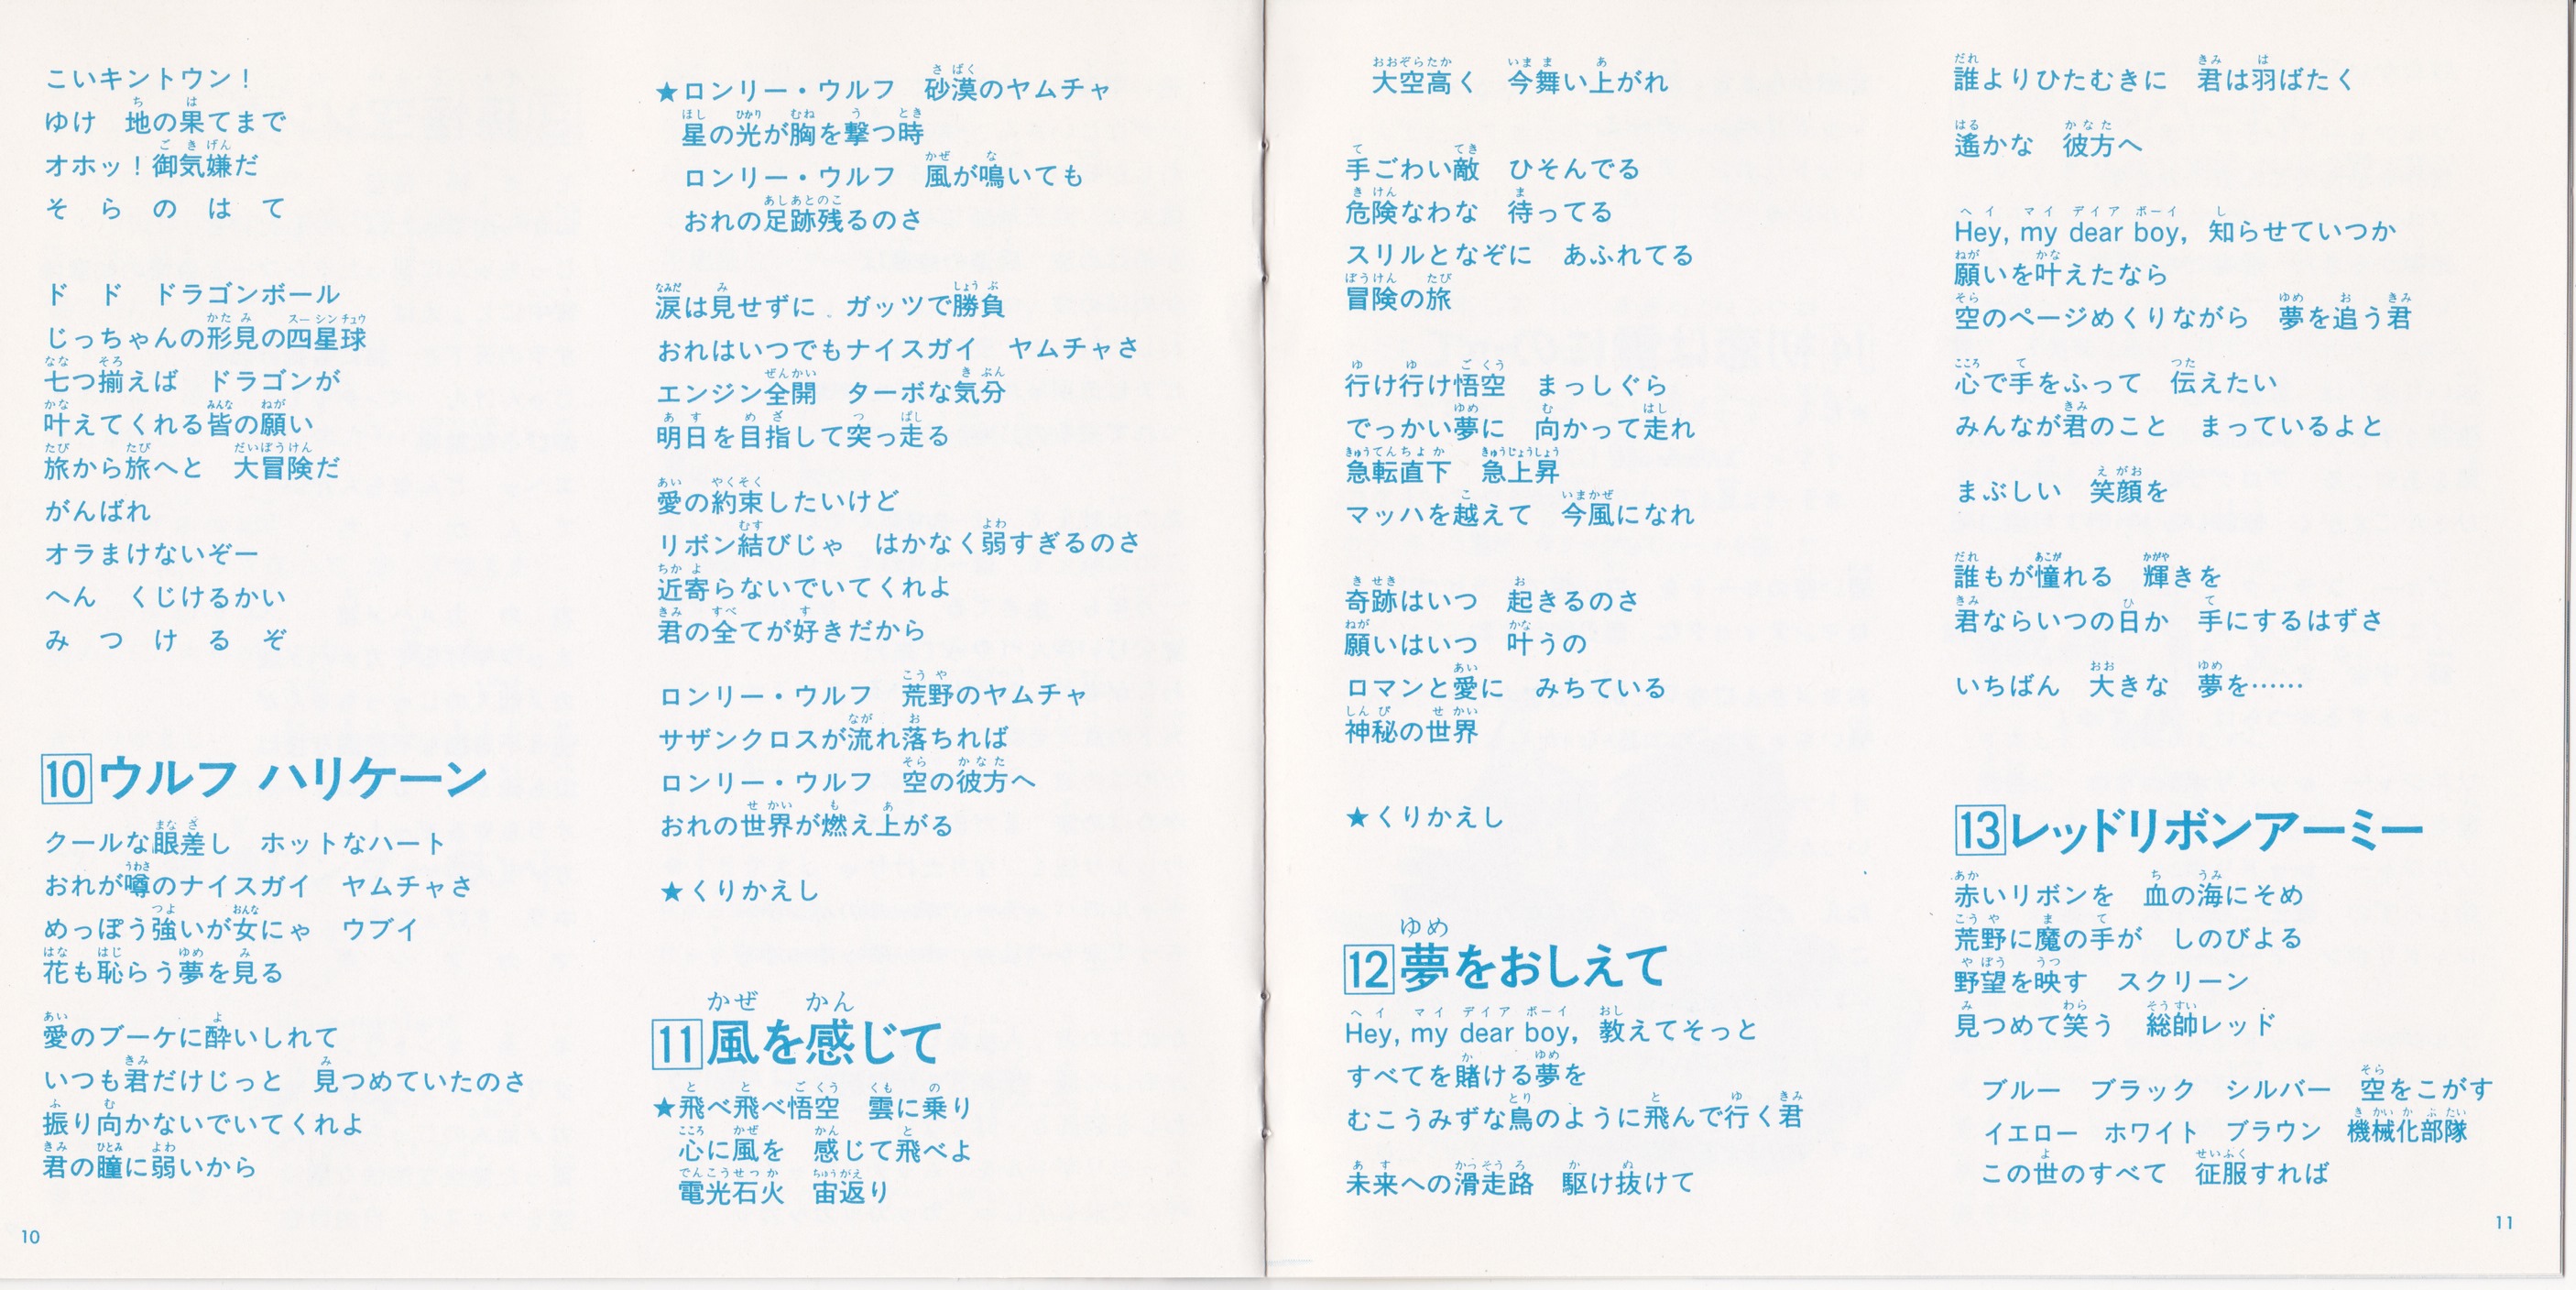 こいキントウン！
ゆけ　地の果てまで
オホッ！御気嫌だ
そ　ら　の　は　て
ド　ド　ドラゴンボール
じっちゃんの形見の四星球
七つ揃えば　ドラゴンが
叶えてくれる皆の願い
旅から旅へと　大冒険だ
がんばれ
オラまけないぞー
へん　くじけるかい
み　つ　け　る　ぞ
10 ウルフ ハリケーン
クールな眼差し　ホットなハート
おれが噂のナイスガイ　ヤムチャさ
めっぽう強いが女にゃ　ウブイ
花も恥らう夢を見る
愛のブーケに酔いしれて
いつも君だけじっと　見つめていたのさ
振り向かないでいてくれよ
君の瞳に弱いから
10
★ロンリー・ウルフ　砂漠のヤムチャ
星の光が胸を撃つ時
ロンリー・ウルフ　風が鳴いても
おれの足跡残るのさ
涙は見せずに　ガッツで勝負
おれはいつでもナイスガイ　ヤムチャさ
エンジン全開　ターボな気分
明日を目指して突っ走る
愛の約束したいけど
リボン結びじゃ　はかなく弱すぎるのさ
近寄らないでいてくれよ
君の全てが好きだから
ロンリー・ウルフ　荒野のヤムチャ
サザンクロスが流れ落ちれば
ロンリー・ウルフ　空の彼方へ
おれの世界が燃え上がる
★くりかえし
11 風を感じて
★飛べ飛べ悟空　雲に乗り
心に風を　感じて飛べよ
電光石火　宙返り
大空高く　今舞い上がれ
手ごわい敵　ひそんでる
危険なわな　待ってる
スリルとなぞに　あふれてる
冒険の旅
行け行け悟空　まっしぐら
でっかい夢に　向かって走れ
急転直下　急上昇
マッハを越えて　今風になれ
奇跡はいつ　起きるのさ
願いはいつ　叶うの
ロマンと愛に　みちている
神秘の世界
★くりかえし
12 夢をおしえて
Hey, my dear boy, 教えてそっと
すべてを賭ける夢を
むこうみずな鳥のように飛んで行く君
未来への滑走路　駆け抜けて
誰よりひたむきに　君は羽ばたく
遙かな　彼方へ
Hey, my dear boy, 知らせていつか
願いを叶えたなら
空のページめくりながら　夢を追う君
心で手をふって　伝えたい
みんなが君のこと　まっているよと
まぶしい　笑顔を
誰もが憧れる　輝きを
君ならいつの日か　手にするはずさ
いちばん　大きな　夢を……
13 レッドリボンアーミー
赤いリボンを　血の海にそめ
荒野に魔の手が　しのびよる
野望を映す　スクリーン
見つめて笑う　総帥レッド
ブルー　ブラック　シルバー　空をこがす
イエロー　ホワイト　ブラウン　機械化部隊
この世のすべて　征服すれば
11